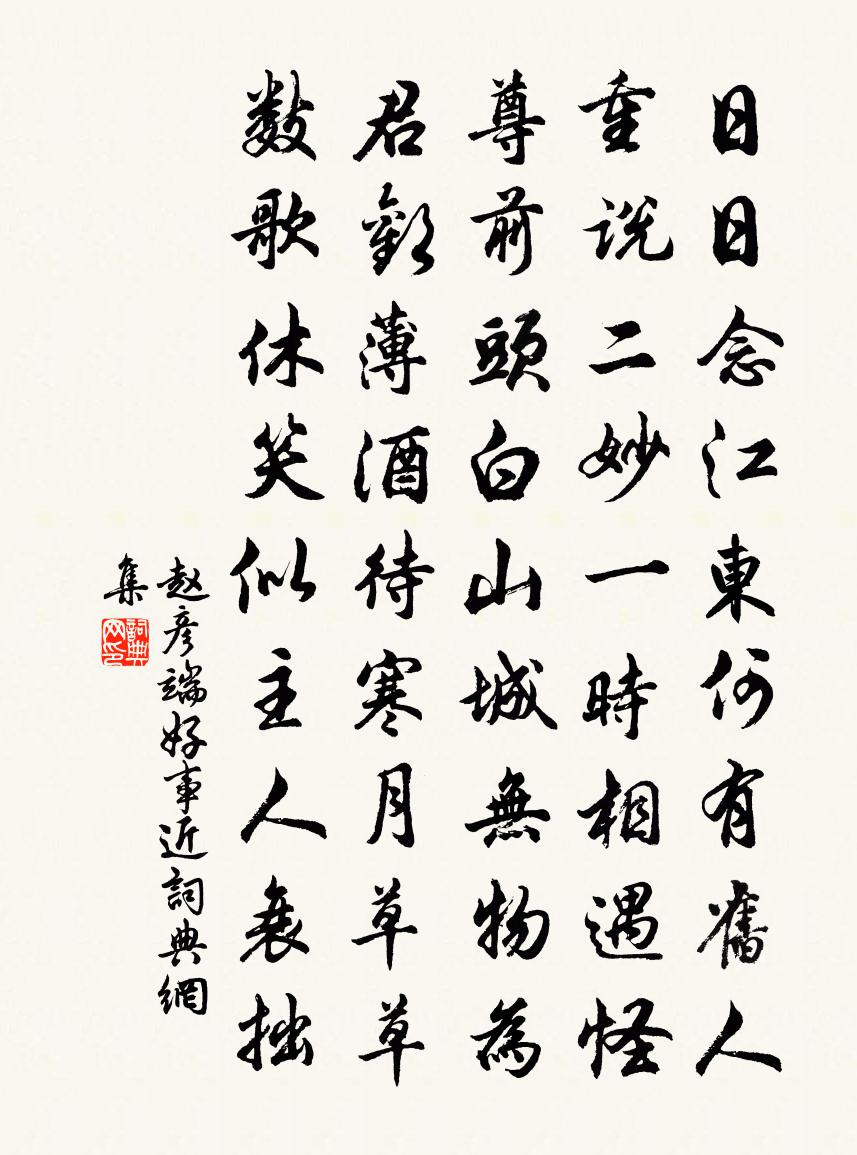 日日念江東何有舊人
重説二妙一時相遇怪
尊前頭白山城無物為
君歡薄酒待寒月草草
數歌休笑似主人衰拙
赵彦端好事近詞典網
集
詞典
网印